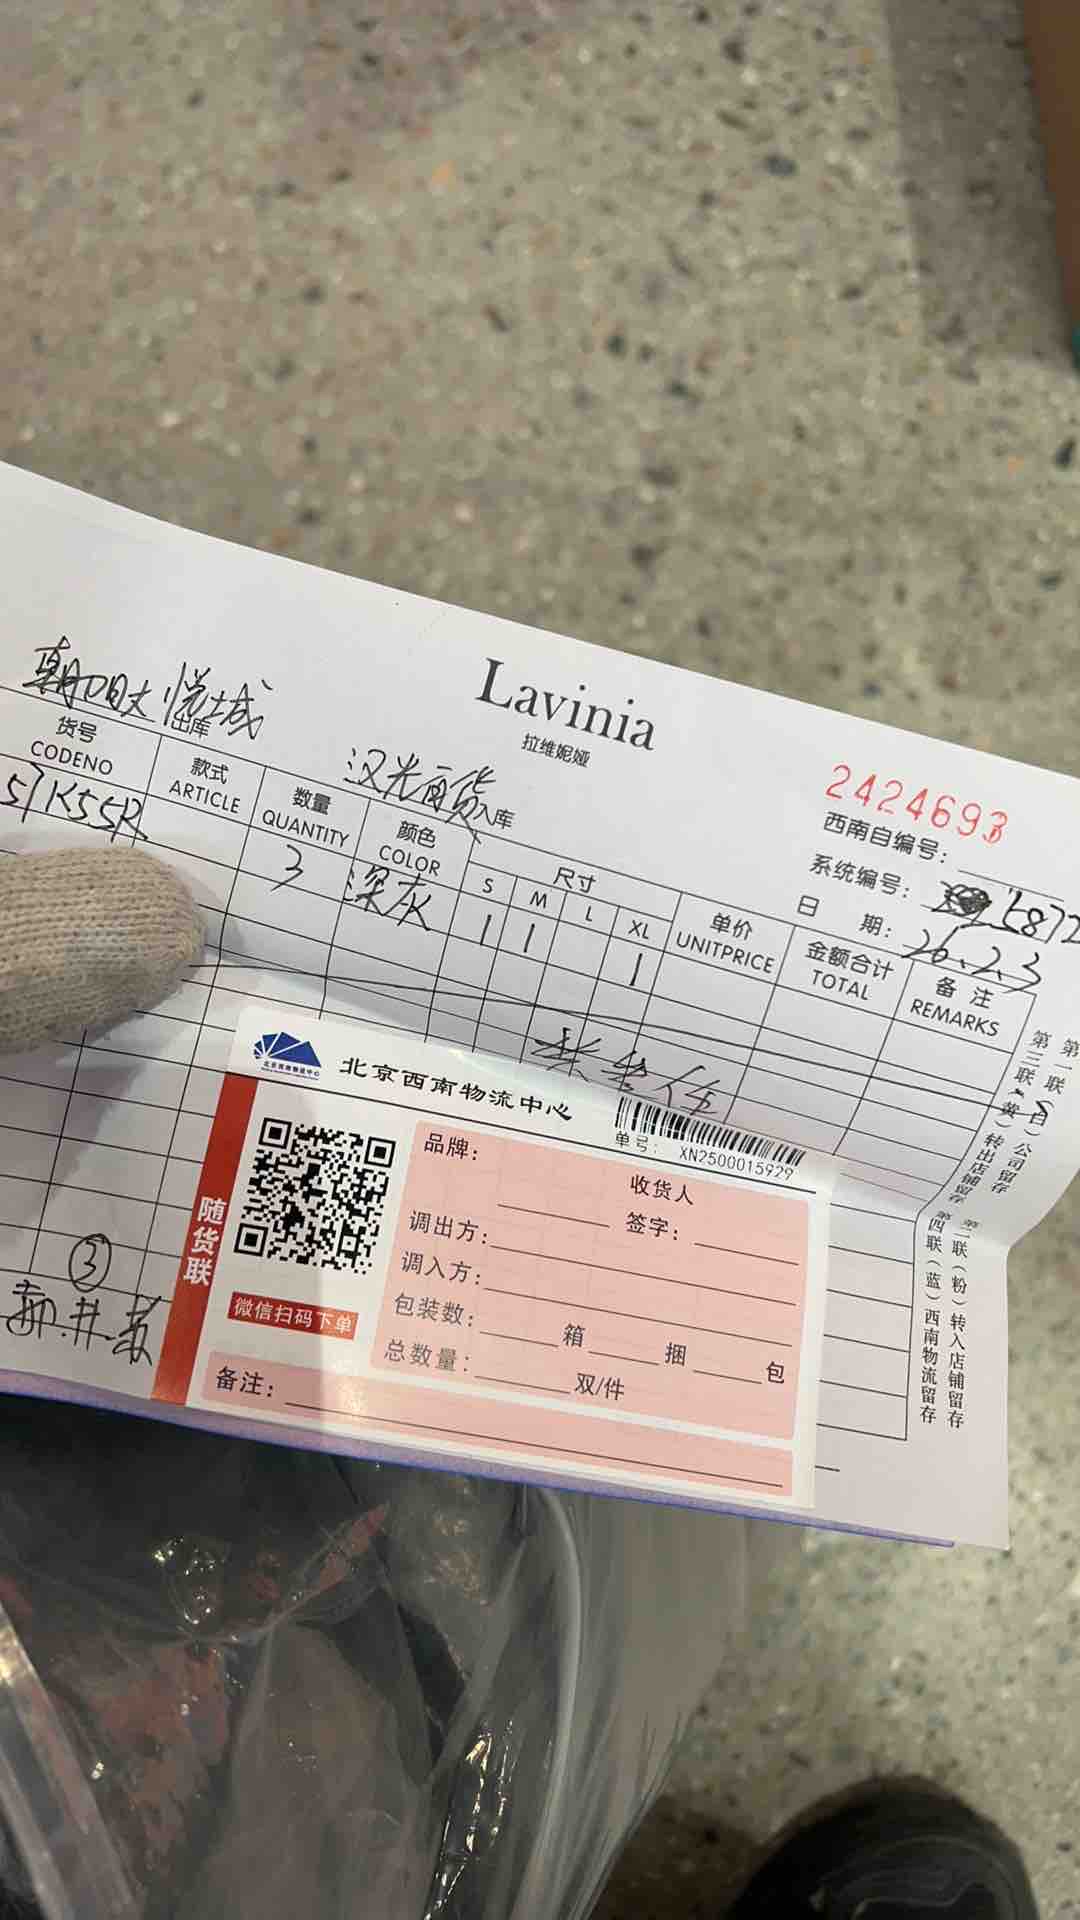 Lavinia
拉维妮娅
朝阳大悦城 出库
汉光百货 入库
2424693
西南自编号:
系统编号: 15872
日 期: 26.2.3
货号 款式 数量 颜色 尺寸 单价 金额合计 备 注
CODENO ARTICLE QUANTITY COLOR S M L XL UNITPRICE TOTAL REMARKS
3 深灰 1 1 1
③
第一联(白)公司留存 第二联(粉)转入店铺留存
第三联(黄)转出店铺留存 第四联(蓝)西南物流留存
北京西南物流中心
北京西南物流中心
单号: XN2500015929
随货联
微信扫码下单
品牌:
收货人
签字:
调出方:
调入方:
包装数: 箱 捆 包
总数量: 双/件
备注: